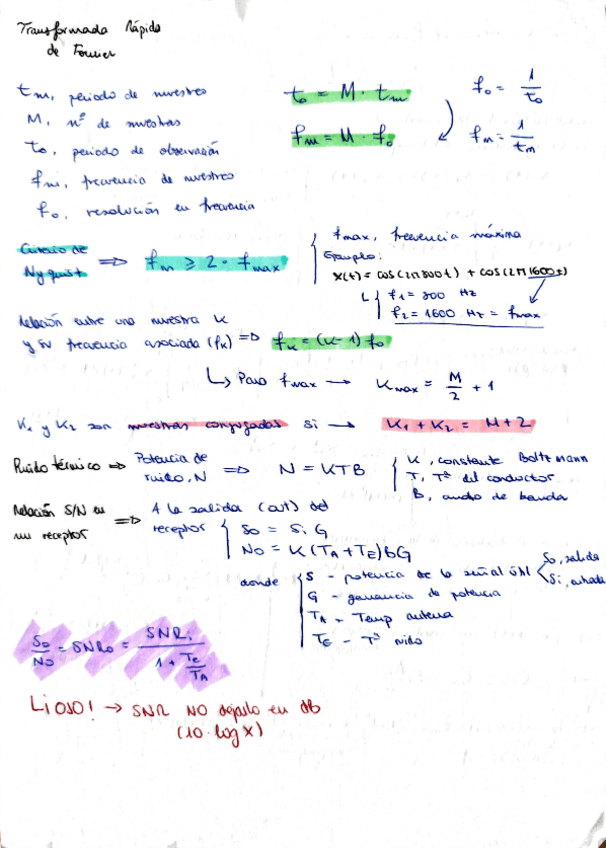 Transformada Rápida
de Fourier
tm, periodo de muestreo
M, nº de muestras
to, periodo de observación
fm, frecuencia de muestreo
fo, resolución en frecuencia
to = M · tm
fm = M · fo
fo = 1/to
fm = 1/tm
Criterio de
Nyquist ⇒ fm ≥ 2 · fmax
fmax, frecuencia máxima
Ejemplo:
x(t) = cos(2π800t) + cos(2π1600t)
f1 = 800 Hz
f2 = 1600 Hz = fmax
Relación entre una muestra K
y su frecuencia asociada (fk) ⇒ fk = (K-1) fo
↳ Para fmax → Kmax = M/2 + 1
K1 y K2 son muestras conjugadas si → K1 + K2 = M+2
Ruido térmico ⇒ Potencia de
ruido, N ⇒ N = KTB
K, constante Boltzmann
T, Tª del conductor
B, ancho de banda
Relación S/N en
un receptor ⇒ A la salida (out) del
receptor
So = Si G
No = K(TA+TE)BG
donde S - potencia de la señal útil
So, salida
Si, entrada
G - ganancia de potencia
TA - Temp antena
TE - Tª ruido
So/No = SNRo = SNRi / 1 + Te/TA
LIOSO! → SNR NO dejarlo en dB
(10·log X)